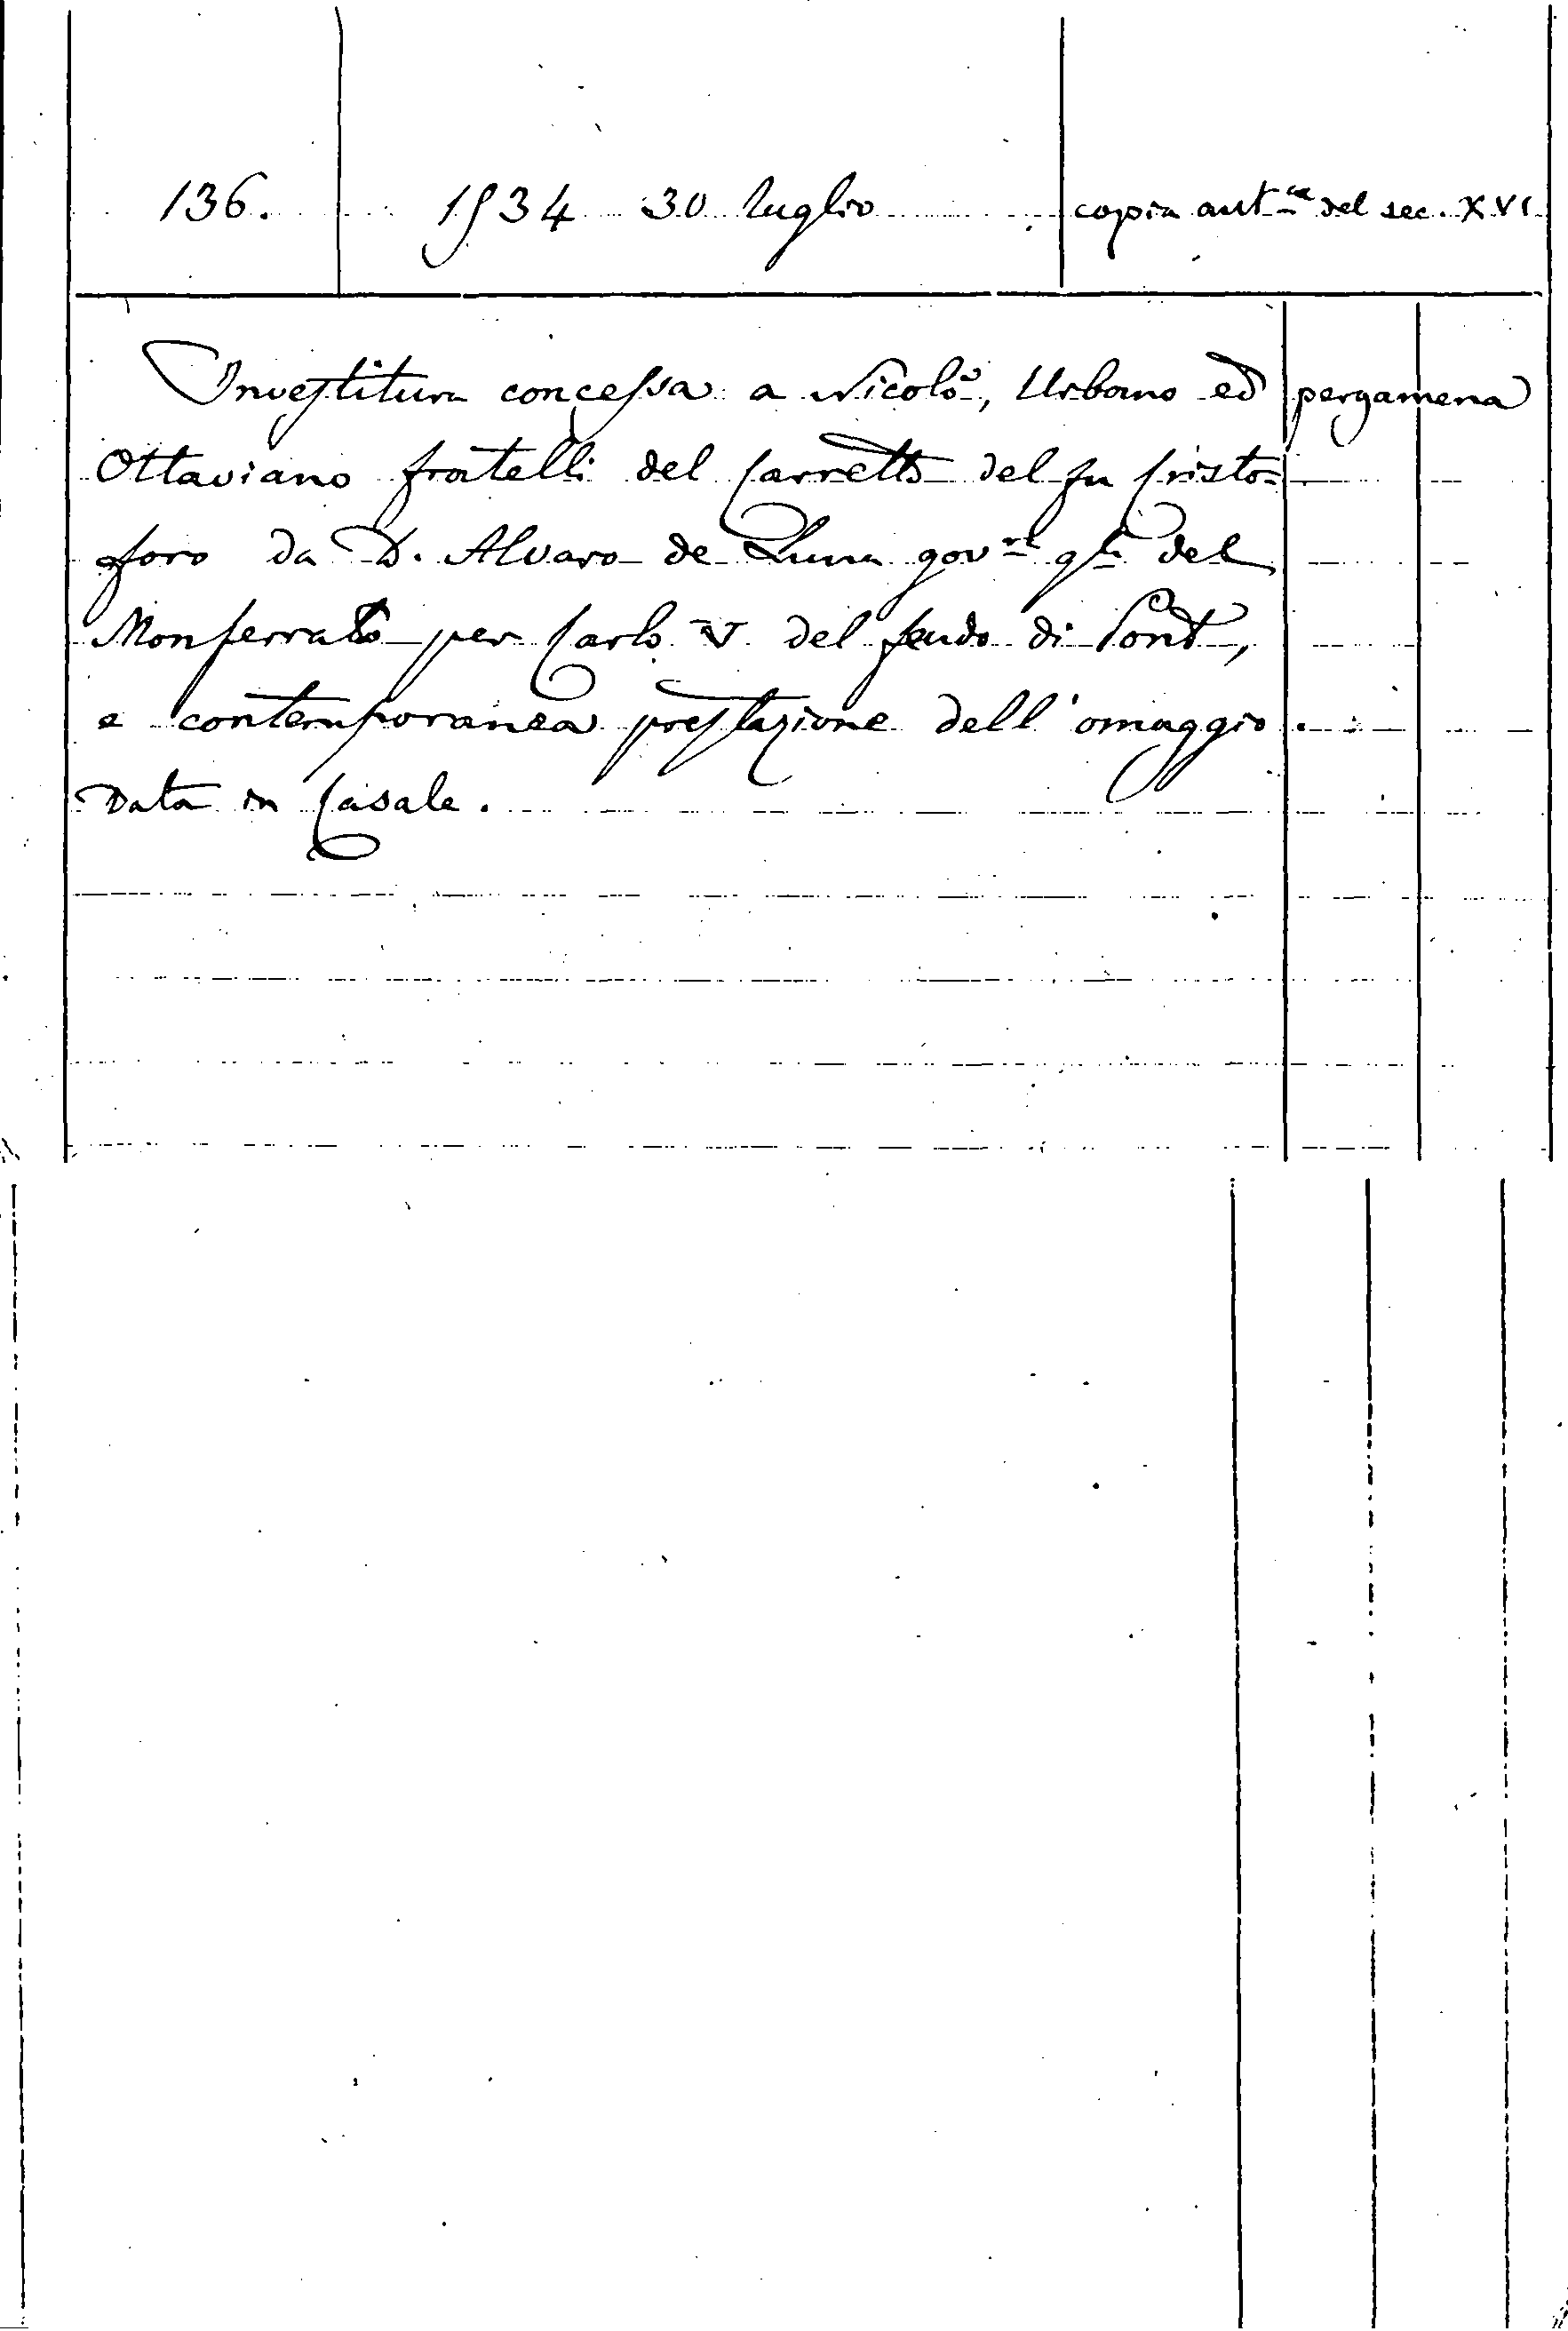 136. 1534 30 luglio copia aut.ca del sec. XVI
Investitura concessa a Nicolò, Urbano ed pergamena
Ottaviano fratelli del Carretto del fu Cristo=
foro da D. Alvaro de Luna gov.re g.le del
Monferrato per Carlo V. del feudo di
e contemporanea prestazione dell'omaggio.
Data in Casale.